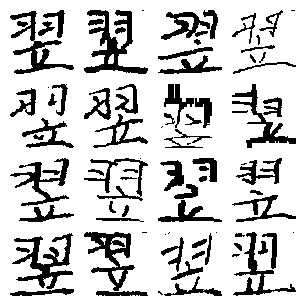 翌翌翌翌
翌翌翌翌
翌翌翌翌
翌翌翌翌